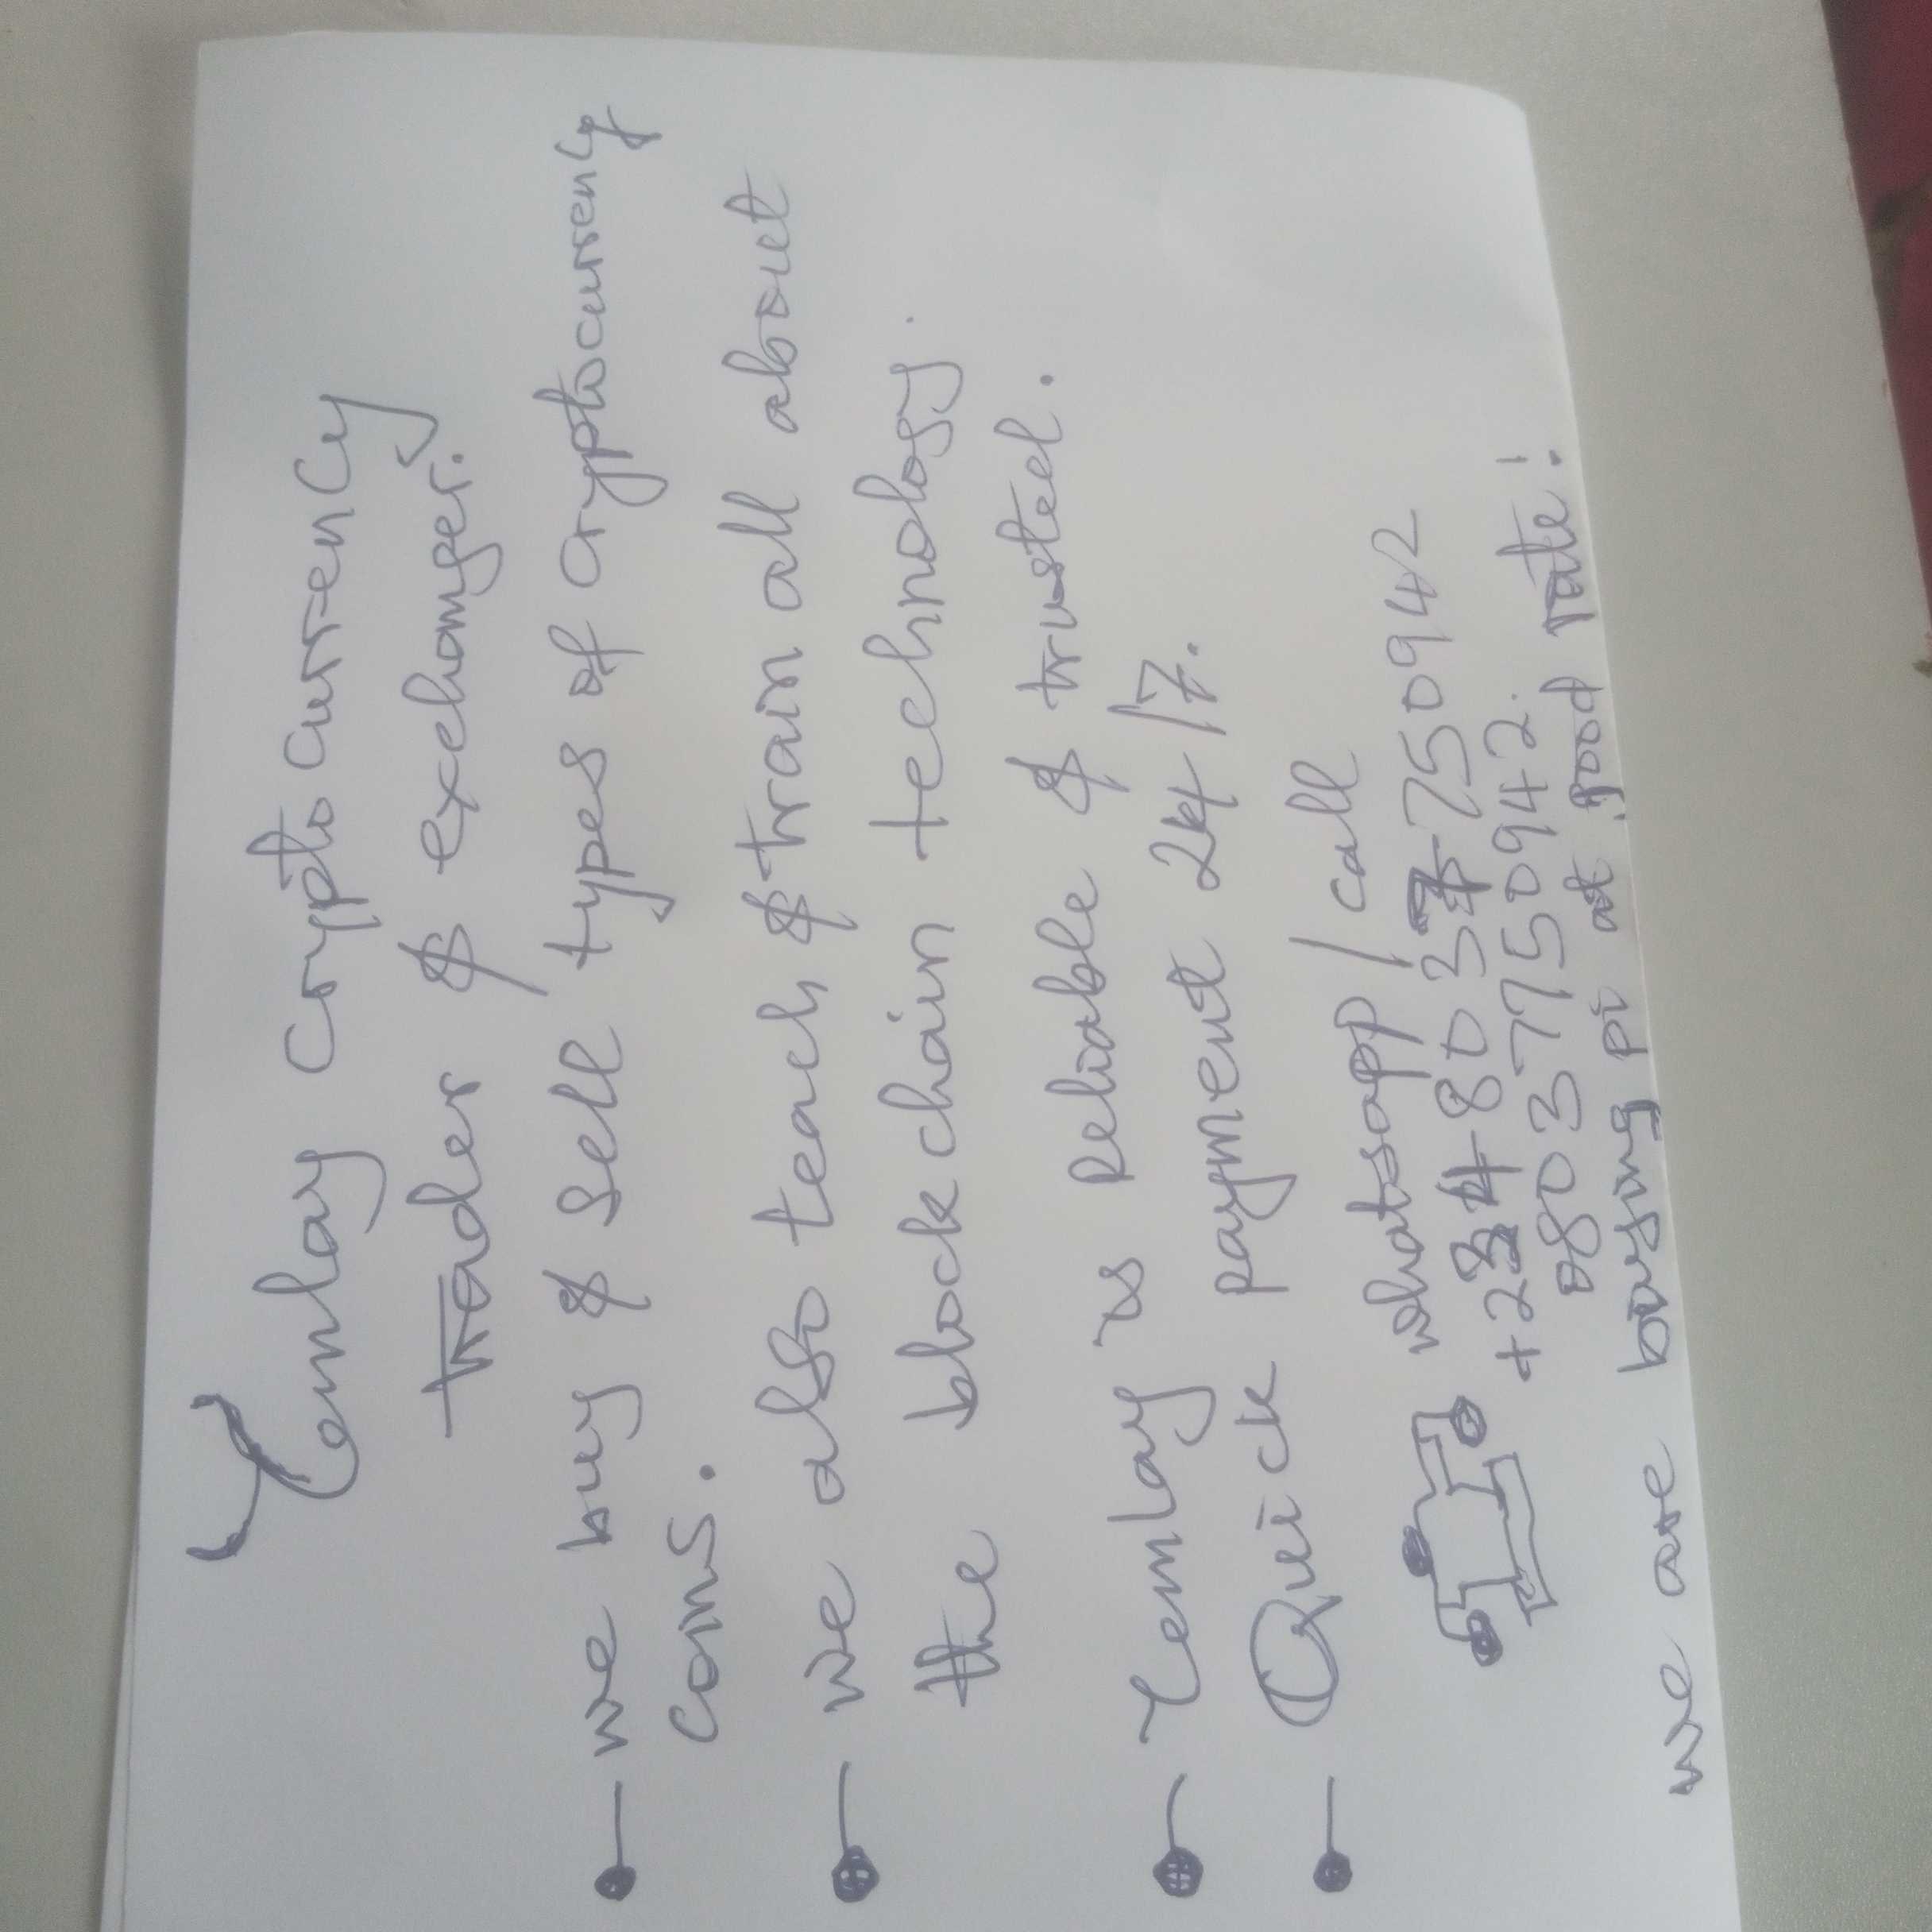 Temlay Crypto currency
Trader & exchanger.
we buy & Sell types of cryptocurrency
coins.
we also teach & train all about
the block chain technology.
Temlay is Reliable & trusted.
Quick payment 24/7.
whatsapp / call
+2348037750942
08037750942.
we are buying pi at good rate!